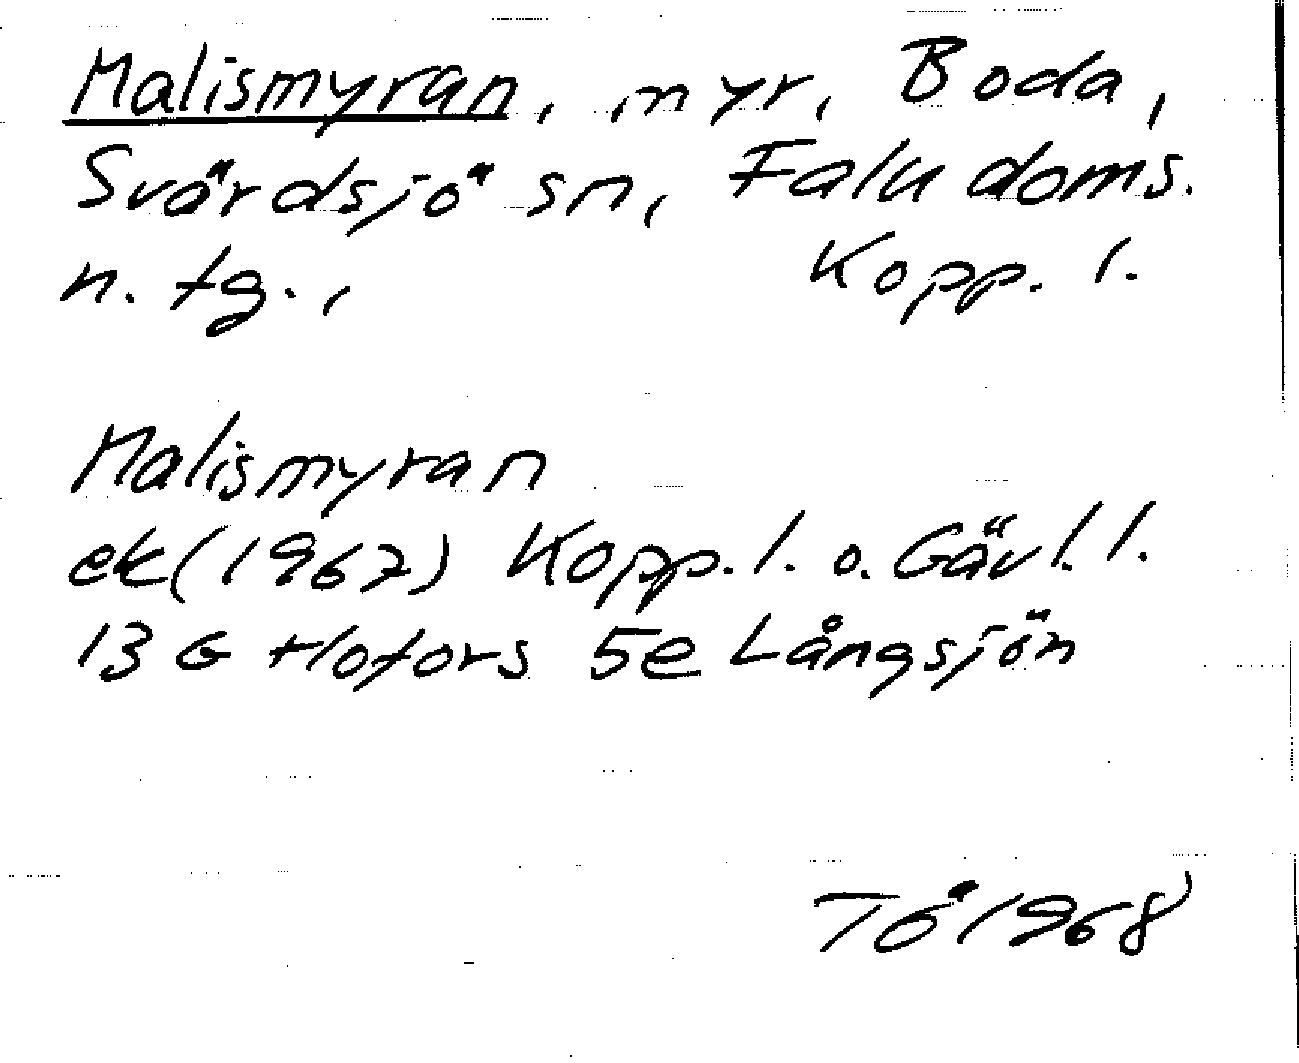 Malismyran, myr, Boda,
Svärdsjö sn, Falu doms.
n. tg., Kopp. l.
Malismyran
ek (1967) Kopp. l. o. Gävl. l.
13 G Hofors 5e Långsjön
TÖ 1968